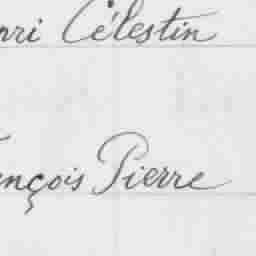 nri Célestin
nçois Pierre